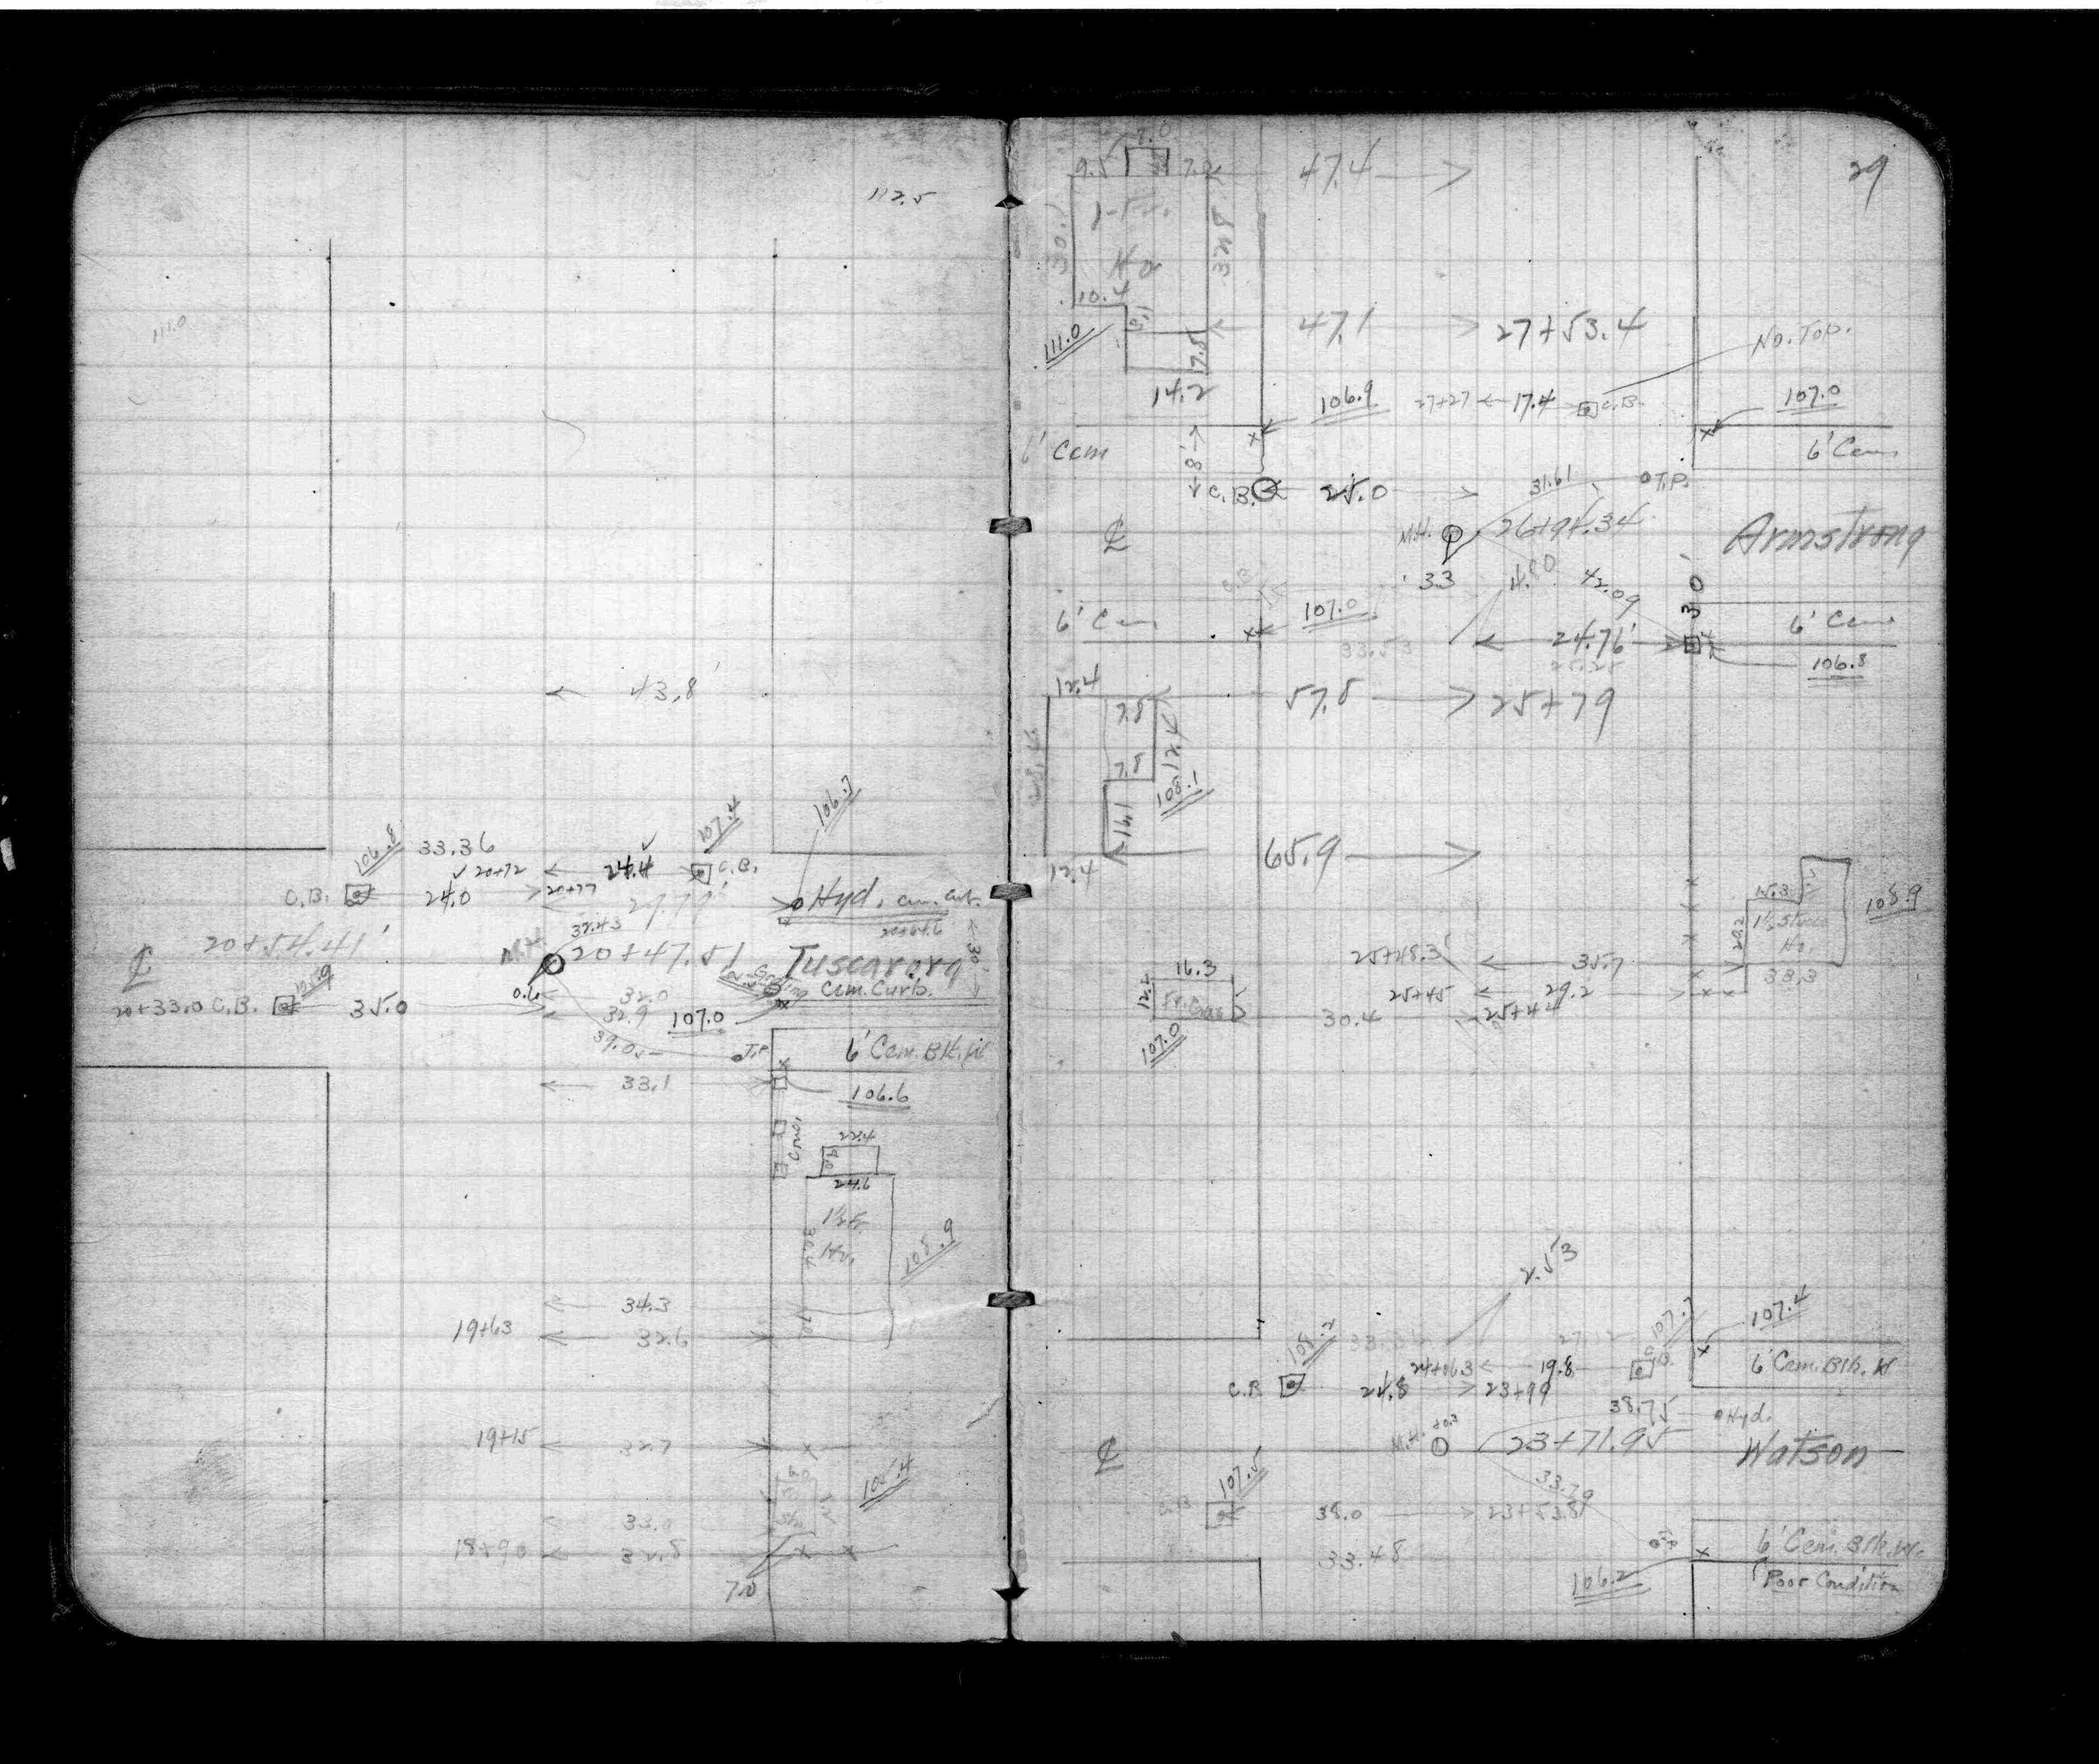 112.5
111.0
43.8'
106.7
106.8
33.36
107.4
20+72
24.4
C.B.
C.B.
24.0
20+77
Hyd.
32.43
20+64.6
20+54.41'
M.H.
20+47.51
Tuscarora
30'
℄
20+33.0 C.B.
35.0
0.6
32.0
Cem. Curb.
32.9
107.0
39.05
T.P.
6' Cem. Bk.
33.1
106.6
22.4
24.6
30.4
108.9
34.3
19+63
32.6
19+15
32.7
105.4
33.0
18+90
32.8
7.0
29
7.0
9.5
47.4
30.1
32.8
10.4
111.0
47.1
27+53.4
No. Top.
14.2
106.9
27+27
17.4
C.B.
107.0
6' Cem
8'
6' Cem
C.B.
25.0
31.61
T.P.
℄
M.H.
26+94.34
Armstrong
3.3
4.80
42.09
30'
6' Cem
107.0
24.76'
6' Cem
33.53
25.25
106.8
12.4
57.8
25+79
7.8
12.1
7.8
108.1
65.9
12.4
15.3
108.9
20.2
Ho.
25+48.3
35.7
38.3
16.3
12.2
25+45
29.2
30.4
25+44
107.0
2.53
108.2
107.7
107.4
24+06.3
19.8
6' Cem. Blk. W
C.B.
24.8
23+99
38.75
Hyd.
M.H.
℄
23+71.95
Watson
107.5
33.79
C.B.
38.0
23+53.8
33.48
6' Cem. Blk. W.
106.2
Poor Condition